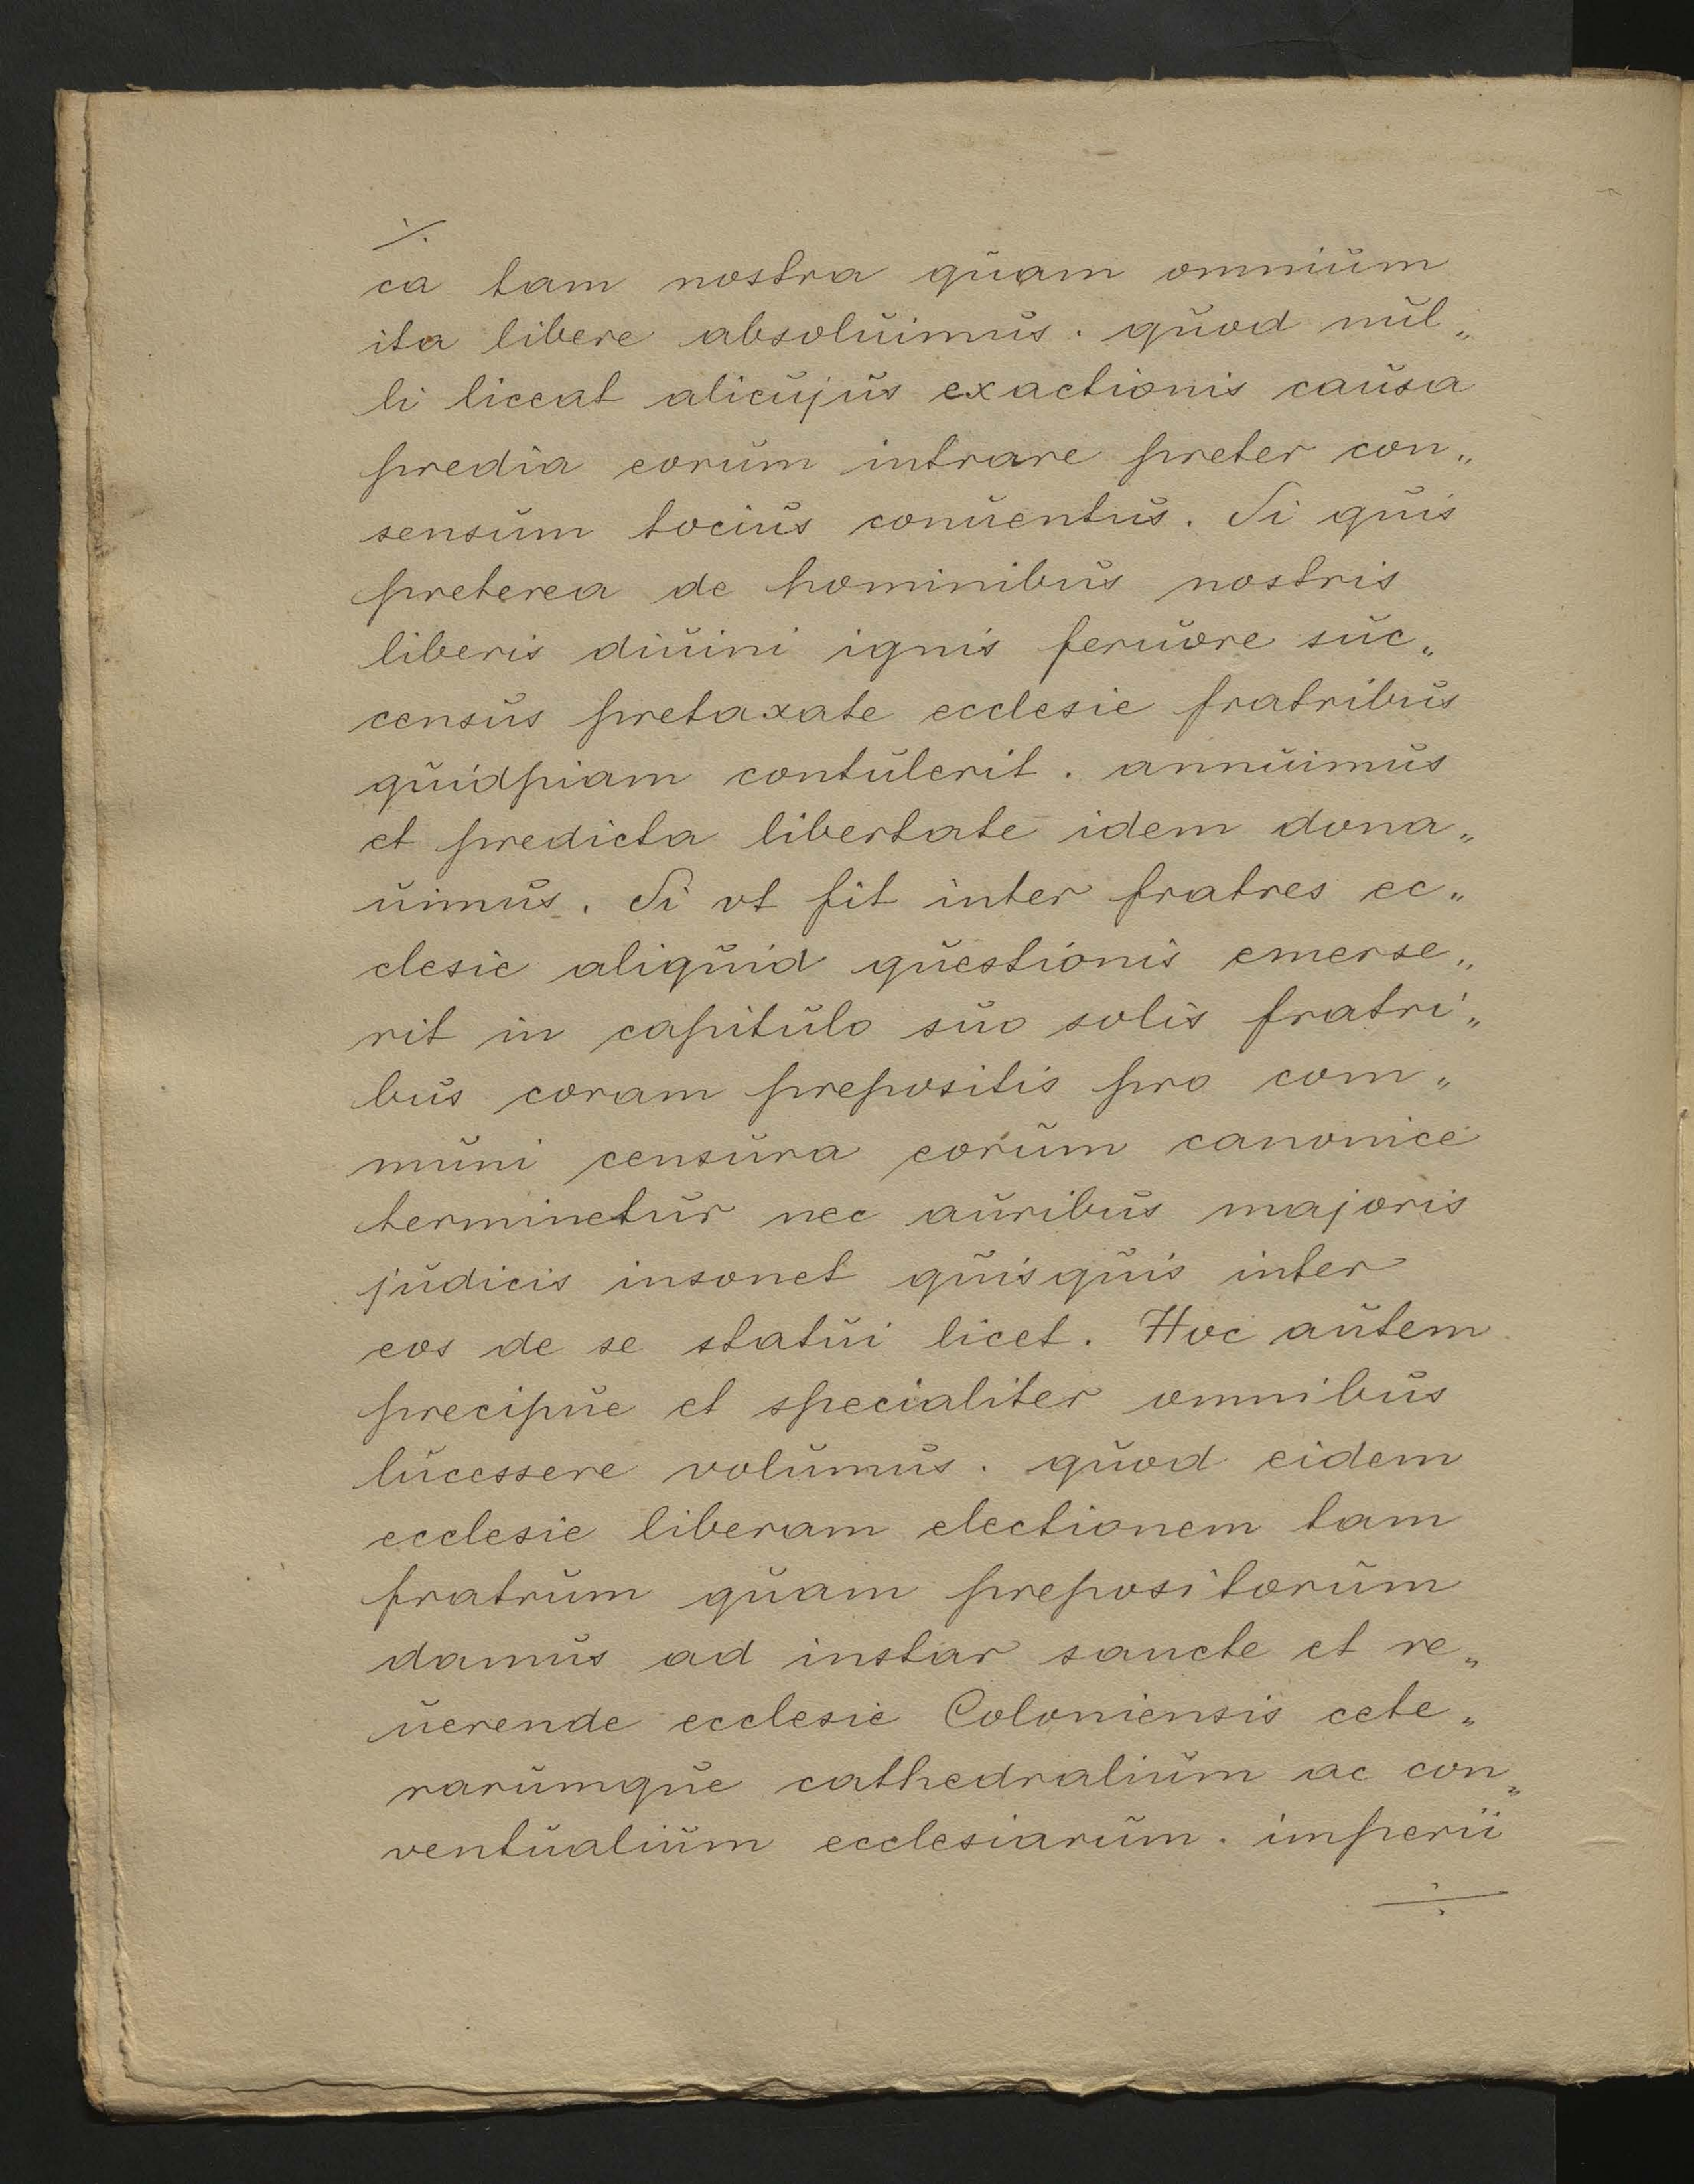 ·/.
ca tam nostra quam omnium
ita libere absoluimus. quod nul„
li liceat alicujus exactionis causa
predia eorum intrare preter con„
sensum tocius conuentus. Si quis
preterea de hominibus nostris
liberis diuini ignis feruore suc„
census pretaxate ecclesie fratribus
quidpiam contulerit. annuimus
et predicta libertate idem dona„
uimus. Si vt fit inter fratres ec„
clesie aliquid questionis emerse„
rit in capitulo suo solis fratri„
bus coram prepositis pro com„
muni censura eorum canonice
terminetur nec auribus majoris
judicis insonet quisquis inter
eos de se statui licet. Hoc autem
precipue et specialiter omnibus
lucessere volumus. quod eidem
ecclesie liberam electionem tam
fratrum quam prepositorum
damus ad instar sancte et re„
uerende ecclesie Coloniensis cete„
rarumque cathedralium ac con„
ventualium ecclesiarum. imperii
÷